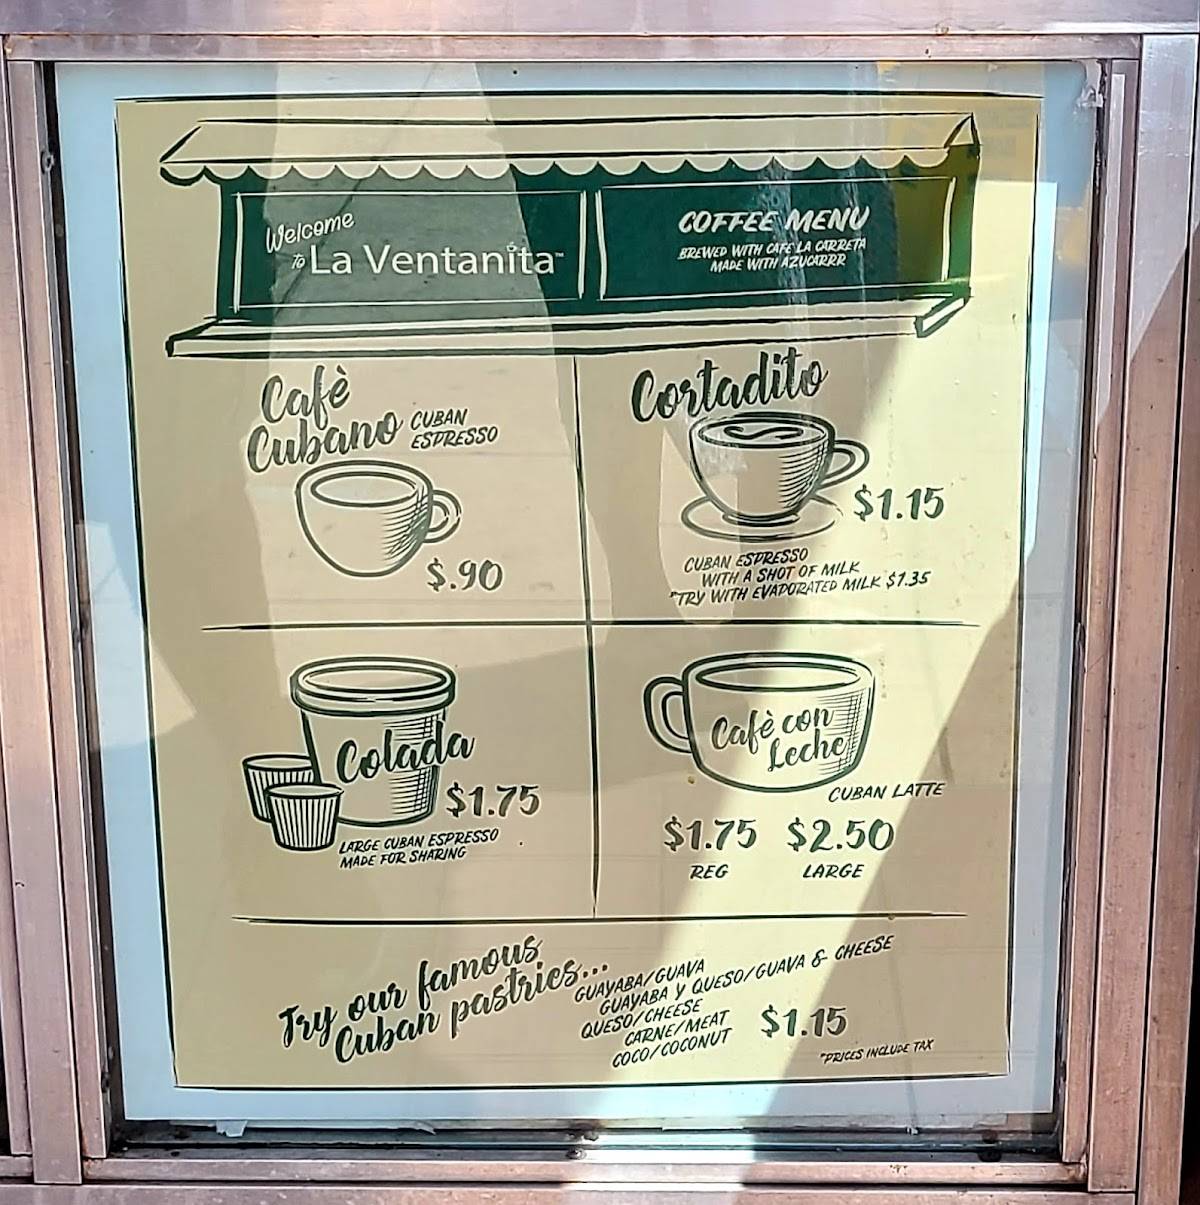 Welcome
To La Ventanita™
COFFEE MENU
BREWED WITH CAFE LA CARRETA
MADE WITH AZUCARRR
Cafè
Cubano
CUBAN
ESPRESSO
$.90
Cortadito
$1.15
CUBAN ESPRESSO
WITH A SHOT OF MILK
*TRY WITH EVAPORATED MILK $1.35
Colada
$1.75
LARGE CUBAN ESPRESSO
MADE FOR SHARING
Cafè con
Leche
CUBAN LATTE
$1.75 $2.50
REG LARGE
Try our famous
Cuban pastries...
GUAYABA/GUAVA
GUAYABA Y QUESO/GUAVA & CHEESE
QUESO/CHEESE
CARNE/MEAT
COCO/COCONUT
$1.15
*PRICES INCLUDE TAX